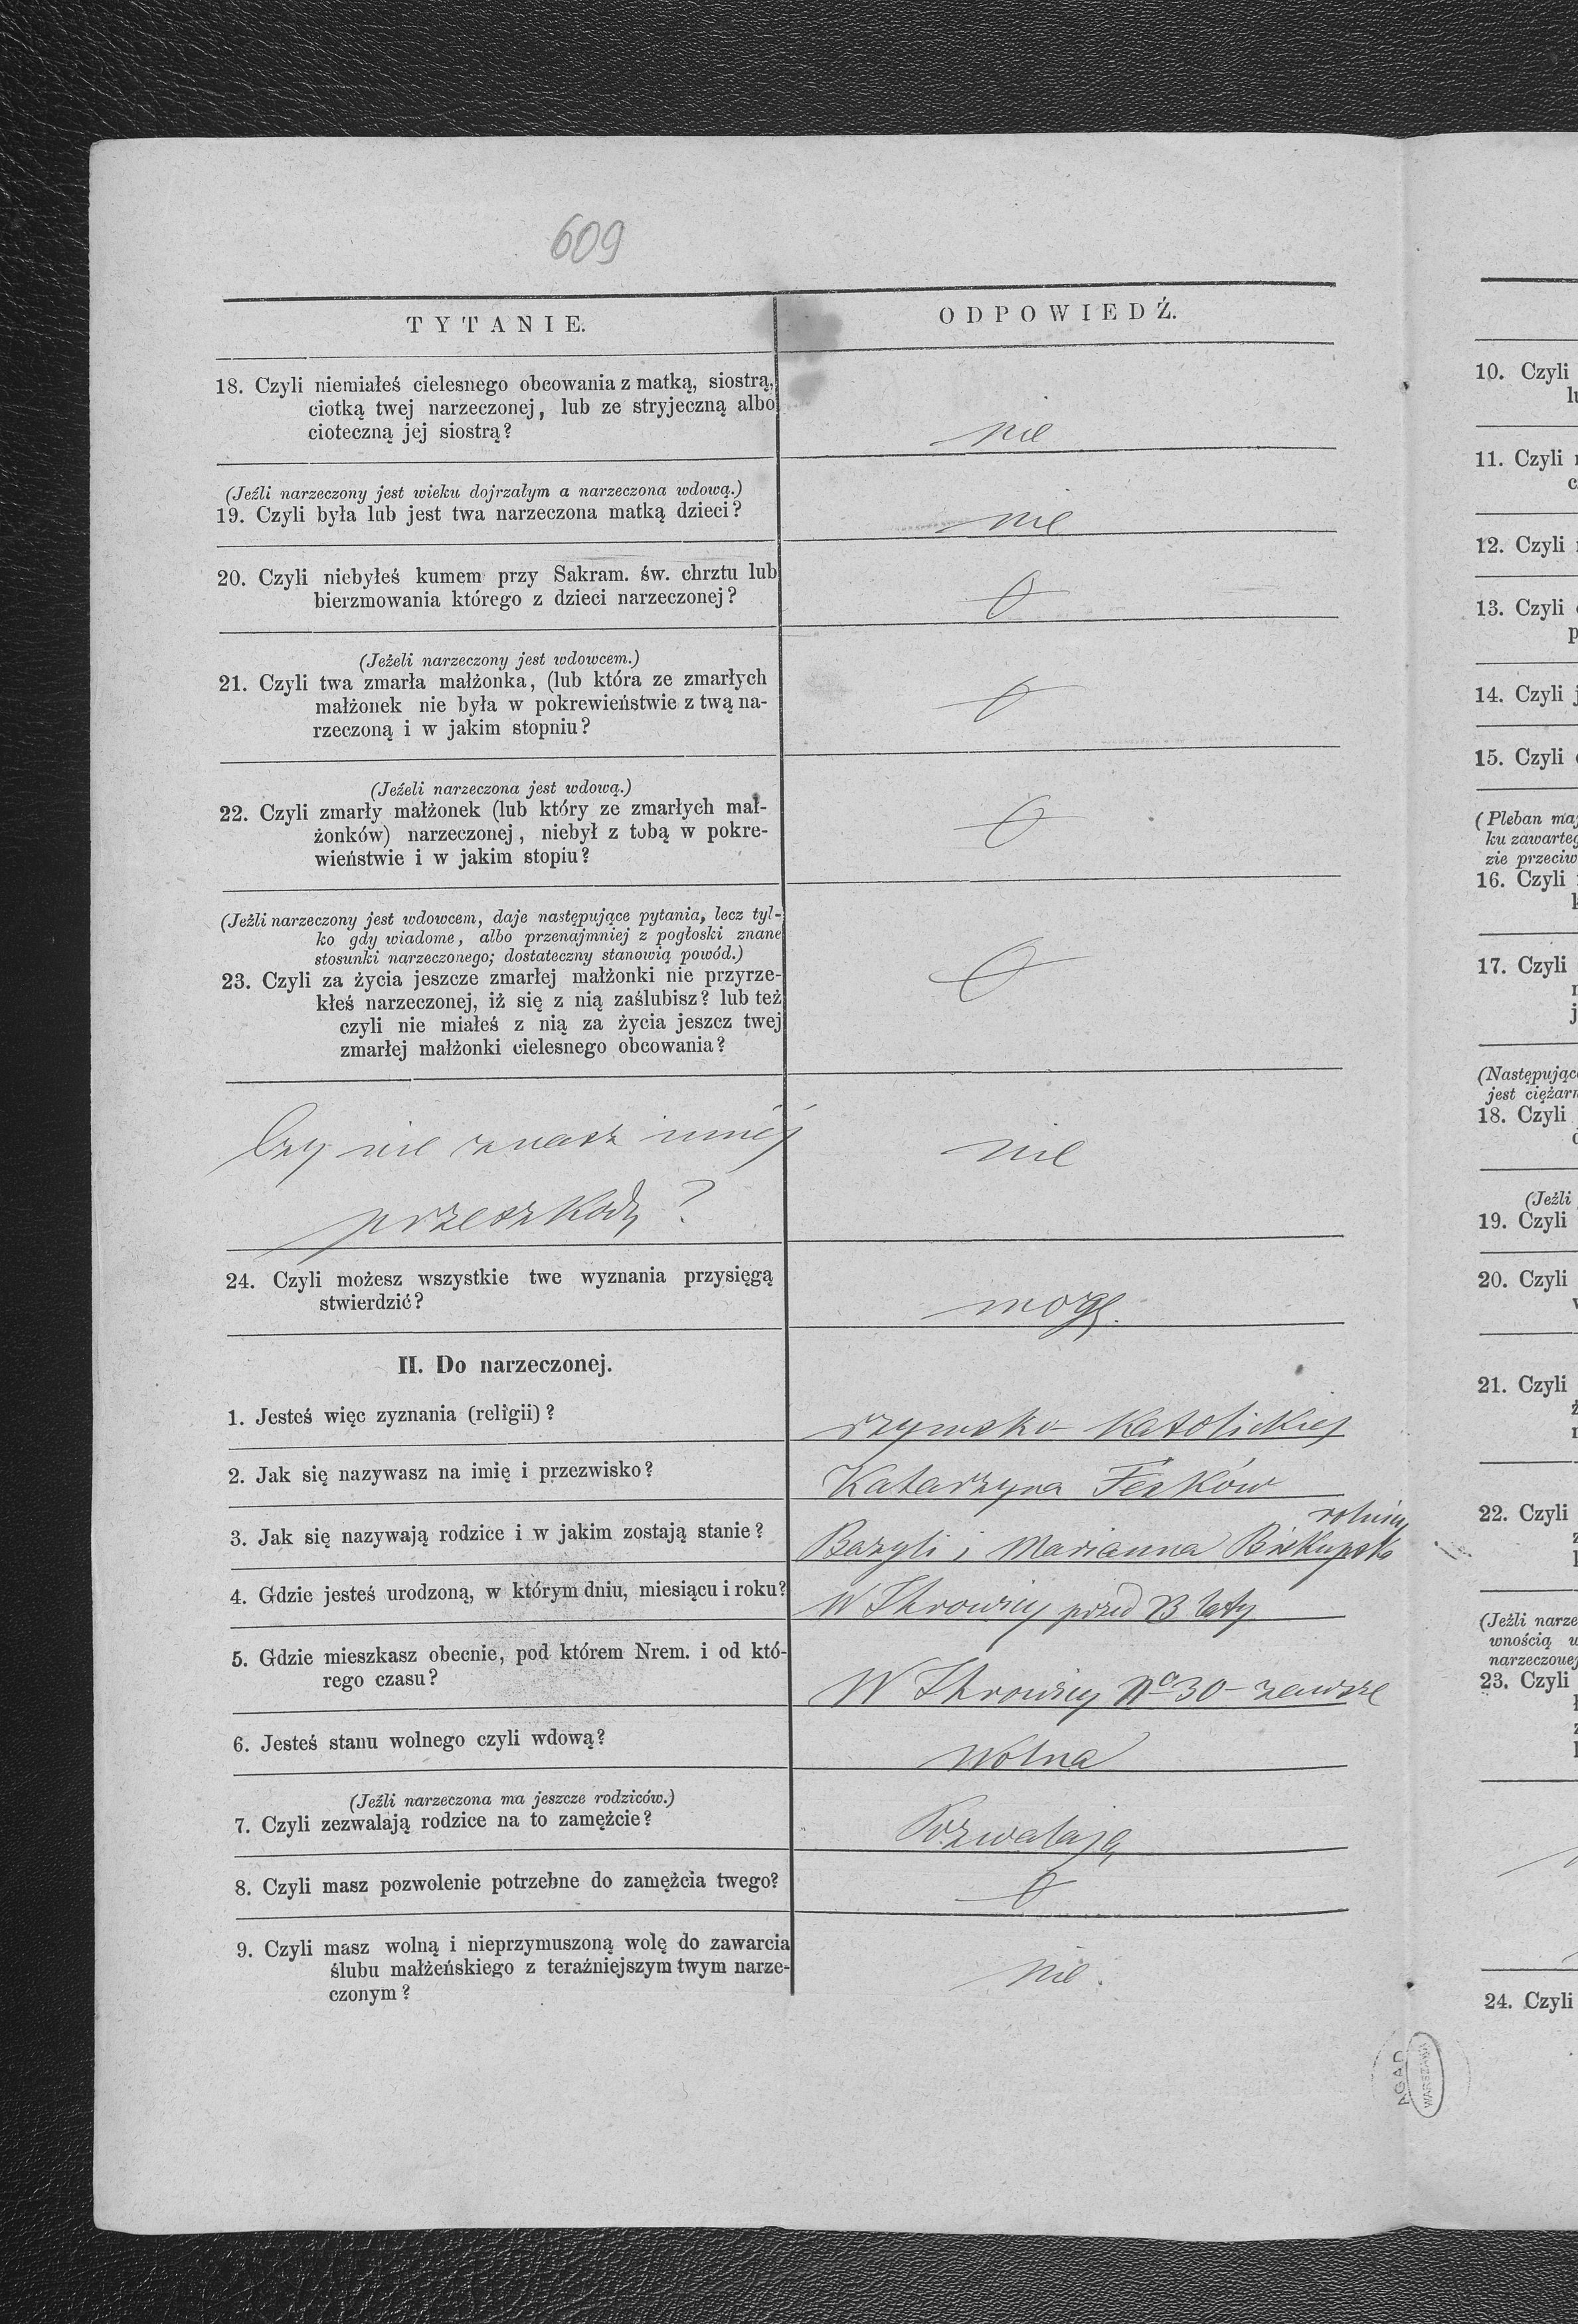 609
TYTANIE.
ODPOWIEDŹ.
18. Czyli niemiałeś cielesnego obcowania z matką, siostrą,
ciotką twej narzeczonej, lub ze stryjeczną albo
cioteczną jej siostrą?
nie
(Jeźli narzeczony jest wieku dojrzałym a narzeczona wdową.)
19. Czyli była lub jest twa narzeczona matką dzieci?
nie
20. Czyli niebyłeś kumem przy Sakram. św. chrztu lub
bierzmowania którego z dzieci narzeczonej?
0
(Jeżeli narzeczony jest wdowcem.)
21. Czyli twa zmarła małżonka, (lub która ze zmarłych
małżonek nie była w pokrewieństwie z twą na-
rzeczoną i w jakim stopniu?
0
(Jeźeli narzeczona jest wdową.)
22. Czyli zmarły małżonek (lub który ze zmarłych mał-
żonków) narzeczonej, niebył z tobą w pokre-
wieństwie i w jakim stopiu?
0
(Jeźli narzeczony jest wdowcem, daje następujące pytania, lecz tyl-
ko gdy wiadome, albo przenajmniej z pogłoski znane
stosunki narzeczonego; dostateczny stanowią powód.)
23. Czyli za życia jeszcze zmarłej małżonki nie przyrze-
kłeś narzeczonej, iż się z nią zaślubisz? lub też
czyli nie miałeś z nią za życia jeszcz twej
zmarłej małżonki cielesnego obcowania?
0
Czy nie znasz innej
przeszkody?
nie
24. Czyli możesz wszystkie twe wyznania przysięgą
stwierdzić?
mogę.
II. Do narzeczonej.
1. Jesteś więc zyznania (religii)?
rzymsko-katolickiej
2. Jak się nazywasz na imię i przezwisko?
Katarzyna Feńków
3. Jak się nazywają rodzice i w jakim zostają stanie?
rolnicy
Bazyli i Marianna Biskupska
4. Gdzie jesteś urodzoną, w którym dniu, miesiącu i roku?
W Ihrowicy przed 23 laty
5. Gdzie mieszkasz obecnie, pod którem Nrem. i od któ-
rego czasu?
W Ihrowicy No 30 - zawsze
6. Jesteś stanu wolnego czyli wdową?
Wolna
(Jeźli narzeczona ma jeszcze rodziców.)
7. Czyli zezwalają rodzice na to zamężcie?
Pozwalają
8. Czyli masz pozwolenie potrzebne do zamężcia twego?
0
9. Czyli masz wolną i nieprzymuszoną wolę do zawarcia
ślubu małżeńskiego z teraźniejszym twym narze-
czonym?
nie.
10. Czyli
11. Czyli
12. Czyli
13. Czyli
14. Czyli
15. Czyli
(Pleban
ku zawarteg
zie przeciw
16. Czyli
17. Czyli
(Następując
jest ciężarn
18. Czyli
(Jeźli
19. Czyli
20. Czyli
21. Czyli
22. Czyli
(Jeźli narze
wnością
narzeczonej
23. Czyli
24. Czyli
AGAD
WARSZAWA